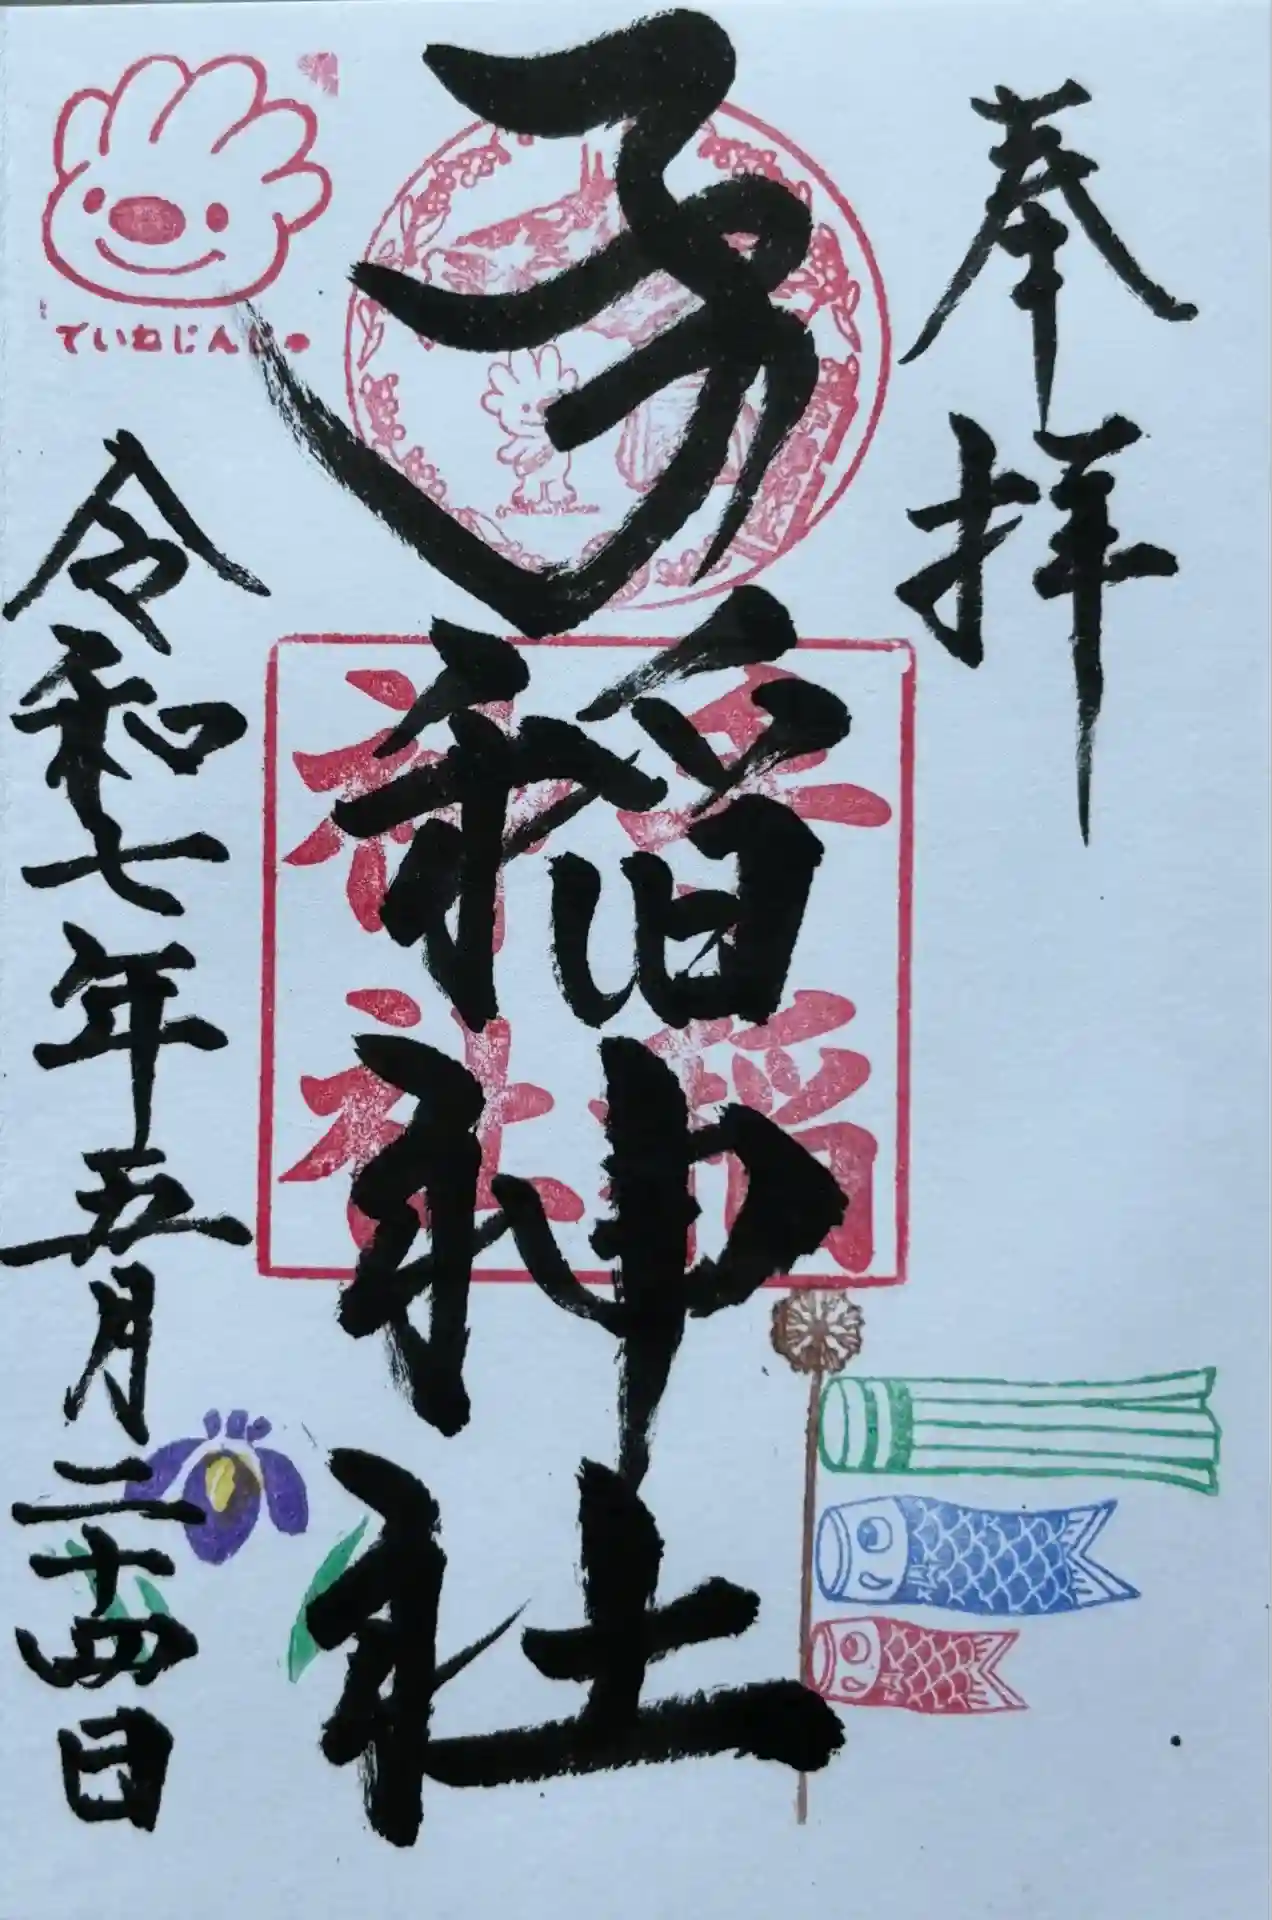 奉拝
手稲神社
手稲
神社
ていねじんじゃ
令和七年五月二十四日